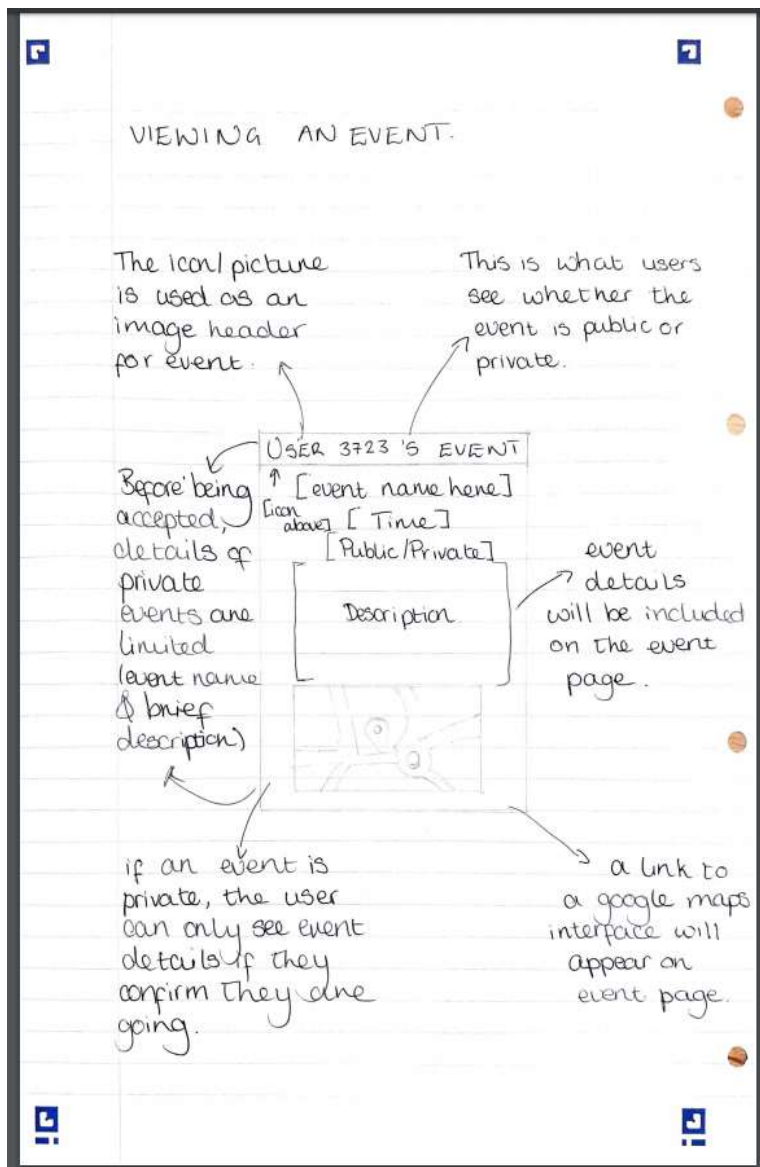 VIEWING AN EVENT.
The icon/picture
is used as an
image header
for event.
This is what users
see whether the
event is public or
private.
USER 3723 'S EVENT
[event name here]
[icon
above]
[Time]
[Public/Private]
Description
Before being
accepted,
details of
private
events are
limited
(event name
& brief
description)
event
details
will be included
on the event
page.
if an event is
private, the user
can only see event
details if they
confirm they are
going.
a link to
a google maps
interface will
appear on
event page.